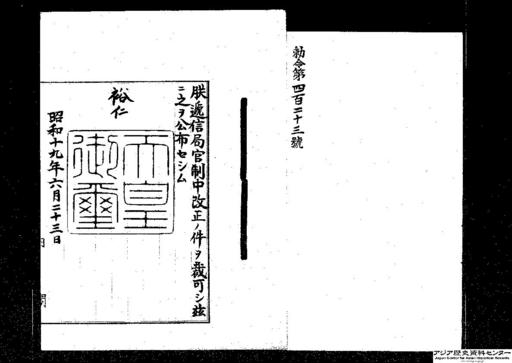 勅令第四百二十三號
朕遞信局官制中改正ノ件ヲ裁可シ茲
ニ之ヲ公布セシム
裕仁
天皇御璽
昭和十九年六月二十三日
アジア歴史資料センター
Japan Center for Asian Historical Records